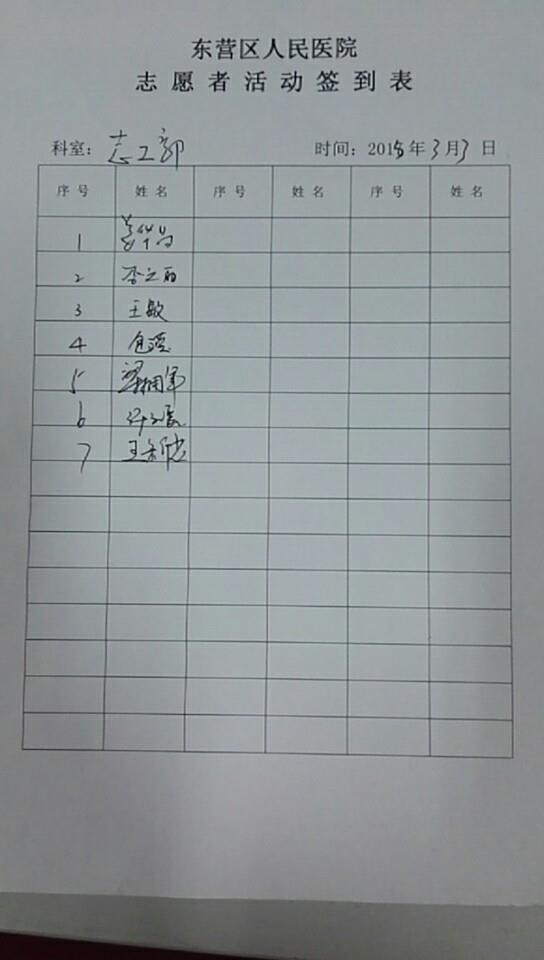 东营区人民医院
志愿者活动签到表
科室：志工部 时间：2015年3月3日
序号 姓名 序号 姓名 序号 姓名
1
2 李之丽
3 王敏
4
5
6
7